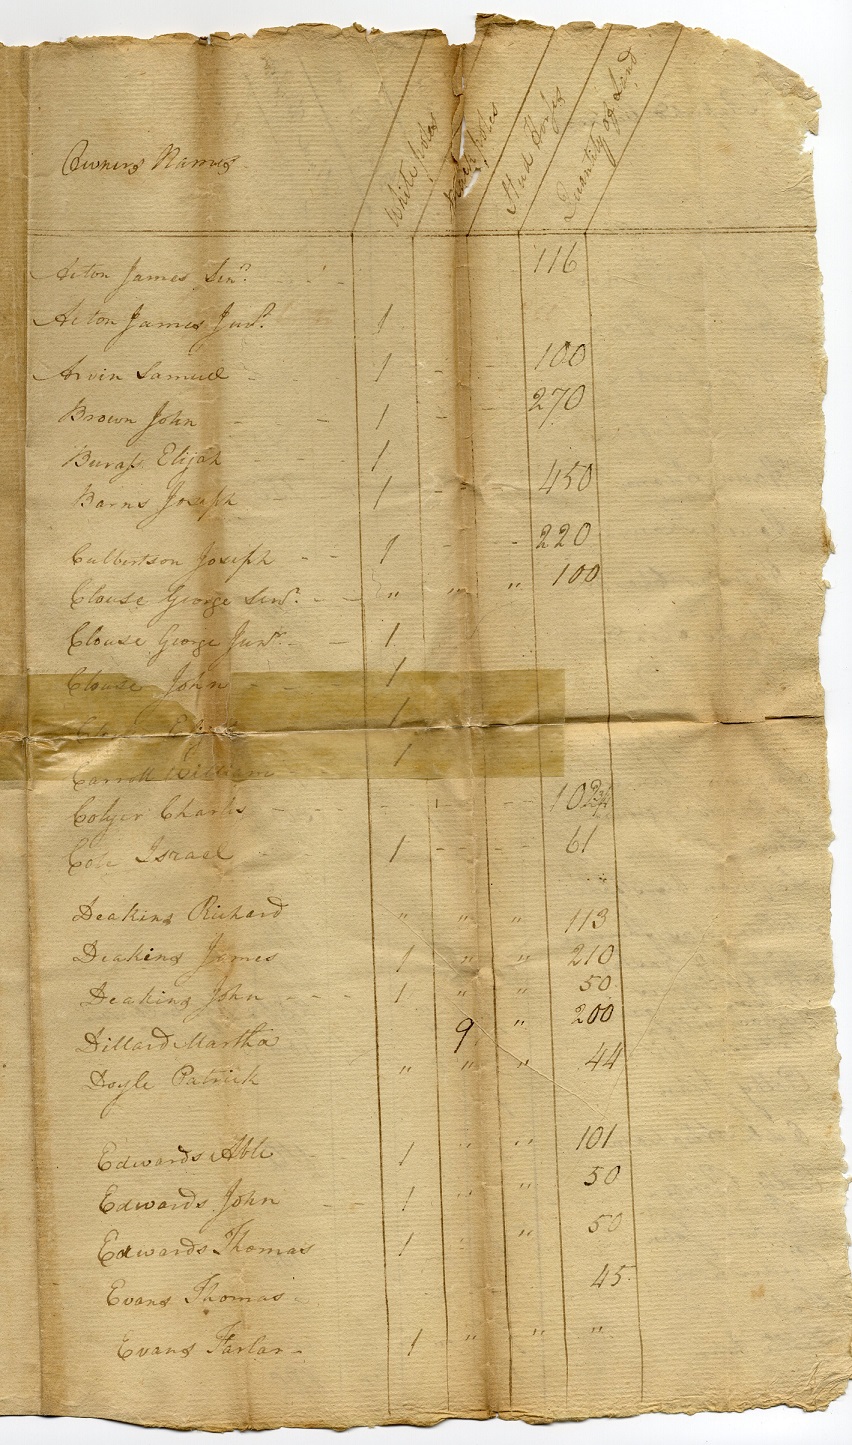 Owners Names. White poles Black poles Stud Horses Quantity of Land
Acton James Senr. 116
Acton James Junr. 1
Arvin Samuel 1 100
Brown John 1 270
Burass Elijah 1
Barns Joseph 1 450
Culbertson Joseph 1 220
Clouse George Senr. " " " 100
Clouse George Junr. 1
Clouse John 1
1
Carroll William 1
Colyer Charles
Cole Israel 1 61
Deakins Richard " " " 113
Deakins James 1 " " 210
Deakins John 1 " " 50
Dillard Martha 9 " 200
Doyle Patrick " " " 44
Edwards Able 1 " " 101
Edwards John 1 " " 50
Edwards Thomas 1 " 50
Evans Thomas 45
Evans Farlar 1 " " "